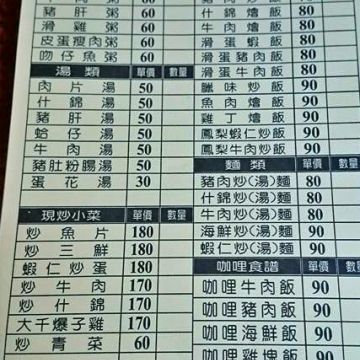 豬肝粥 60
滑雞粥 60
皮蛋瘦肉粥 60
吻仔魚粥 60
湯類 單價 數量
肉片湯 50
什錦湯 50
豬肝湯 50
蛤仔湯 50
牛肉湯 50
豬肚粉腸湯 50
蛋花湯 30
現炒小菜 單價 數量
炒魚片 180
炒三鮮 180
蝦仁炒蛋 180
炒牛肉 170
炒什錦 170
大千爆子雞 170
炒青菜 60
什錦燴飯 80
牛肉燴飯 80
滑蛋蝦飯 80
滑蛋豬肉飯 80
滑蛋牛肉飯 80
臘味炒飯 90
魚肉燴飯 90
雞丁燴飯 90
鳳梨蝦仁炒飯 90
鳳梨牛肉炒飯 90
麵類 單價 數量
豬肉炒(湯)麵 80
什錦炒(湯)麵 80
牛肉炒(湯)麵 80
海鮮炒(湯)麵 90
蝦仁炒(湯)麵 90
咖哩食譜 單價 數量
咖哩牛肉飯 90
咖哩豬肉飯 90
咖哩海鮮飯 90
咖哩雞塊飯 90